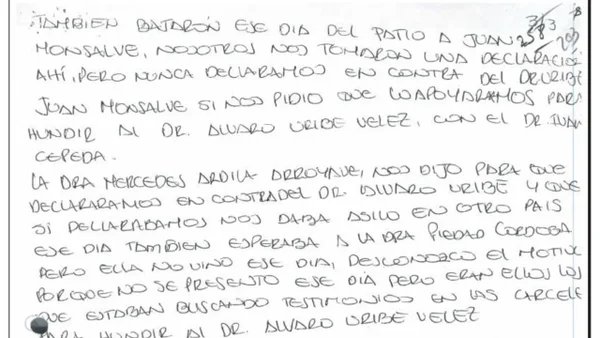 TAMBIEN BAJARON ESE DIA DEL PATIO A JUAN
MONSALVE, NOSOTROS NOS TOMARON UNA DECLARACIÓN
AHÍ, PERO NUNCA DECLARAMOS EN CONTRA DEL DR URIBE
JUAN MONSALVE SI NOS PIDIO QUE LO APOYARAMOS PARA
HUNDIR AL DR. ALVARO URIBE VELEZ, CON EL DR. IVAN
CEPEDA.
LA DRA MERCEDES ARDILA ARROYAVE, NOS DIJO PARA QUE
DECLARARAMOS EN CONTRA DEL DR. ALVARO URIBE Y QUE
SI DECLARABAMOS NOS DABA ASILO EN OTRO PAIS
ESE DIA TAMBIEN ESPERABA A LA DRA PIEDAD CORDOBA
PERO ELLA NO VINO ESE DIA, DESCONOZCO EL MOTIVO
PORQUE NO SE PRESENTO ESE DIA PERO ERAN ELLOS LOS
QUE ESTABAN BUSCANDO TESTIMONIOS EN LAS CARCELE
PARA HUNDIR AL DR. ALVARO URIBE VELEZ